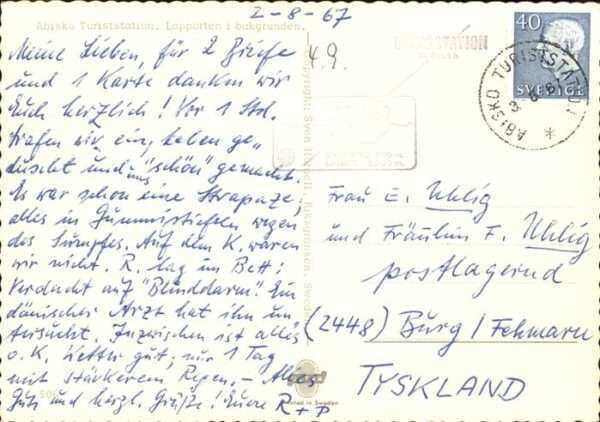 2-8-67
Abisko Turiststation. Lapporten i bakgrunden.
Meine Lieben, für 2 Briefe
und 1 Karte danken wir
Euch herzlich! Vor 1 Std.
trafen wir ein, haben ge
duscht und uns "schön" gemacht.
Es war schon eine Strapaze,
alles in Gummistiefeln wegen
des Sumpfes. Auf dem K. waren
wir nicht. R. lag im Bett:
Verdacht auf "Blinddarm". Ein
dänischer Arzt hat ihn un
tersucht. Inzwischen ist alles
o.K. Wetter gut, nur 1 Tag
mit stärkerem Regen. – Alles
Gute und herzl. Grüße! Eure R + P
4.9.
TURISTSTATION
40
SVERIGE
ABISKO TURISTSTATION
Frau E. Uhlig
und Fräulein F. Uhlig
postlagernd
(2448) Burg / Fehmarn
TYSKLAND
Printed in Sweden